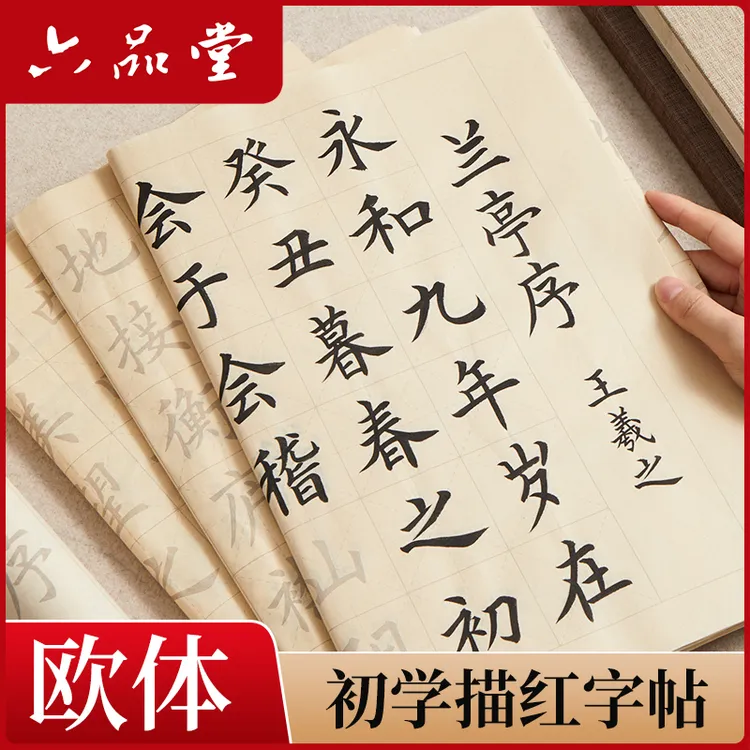 六品堂
兰亭序
王羲之
永和九年岁在
癸丑暮春之初
会于会稽山
地接衡庐
序
欧体
初学描红字帖